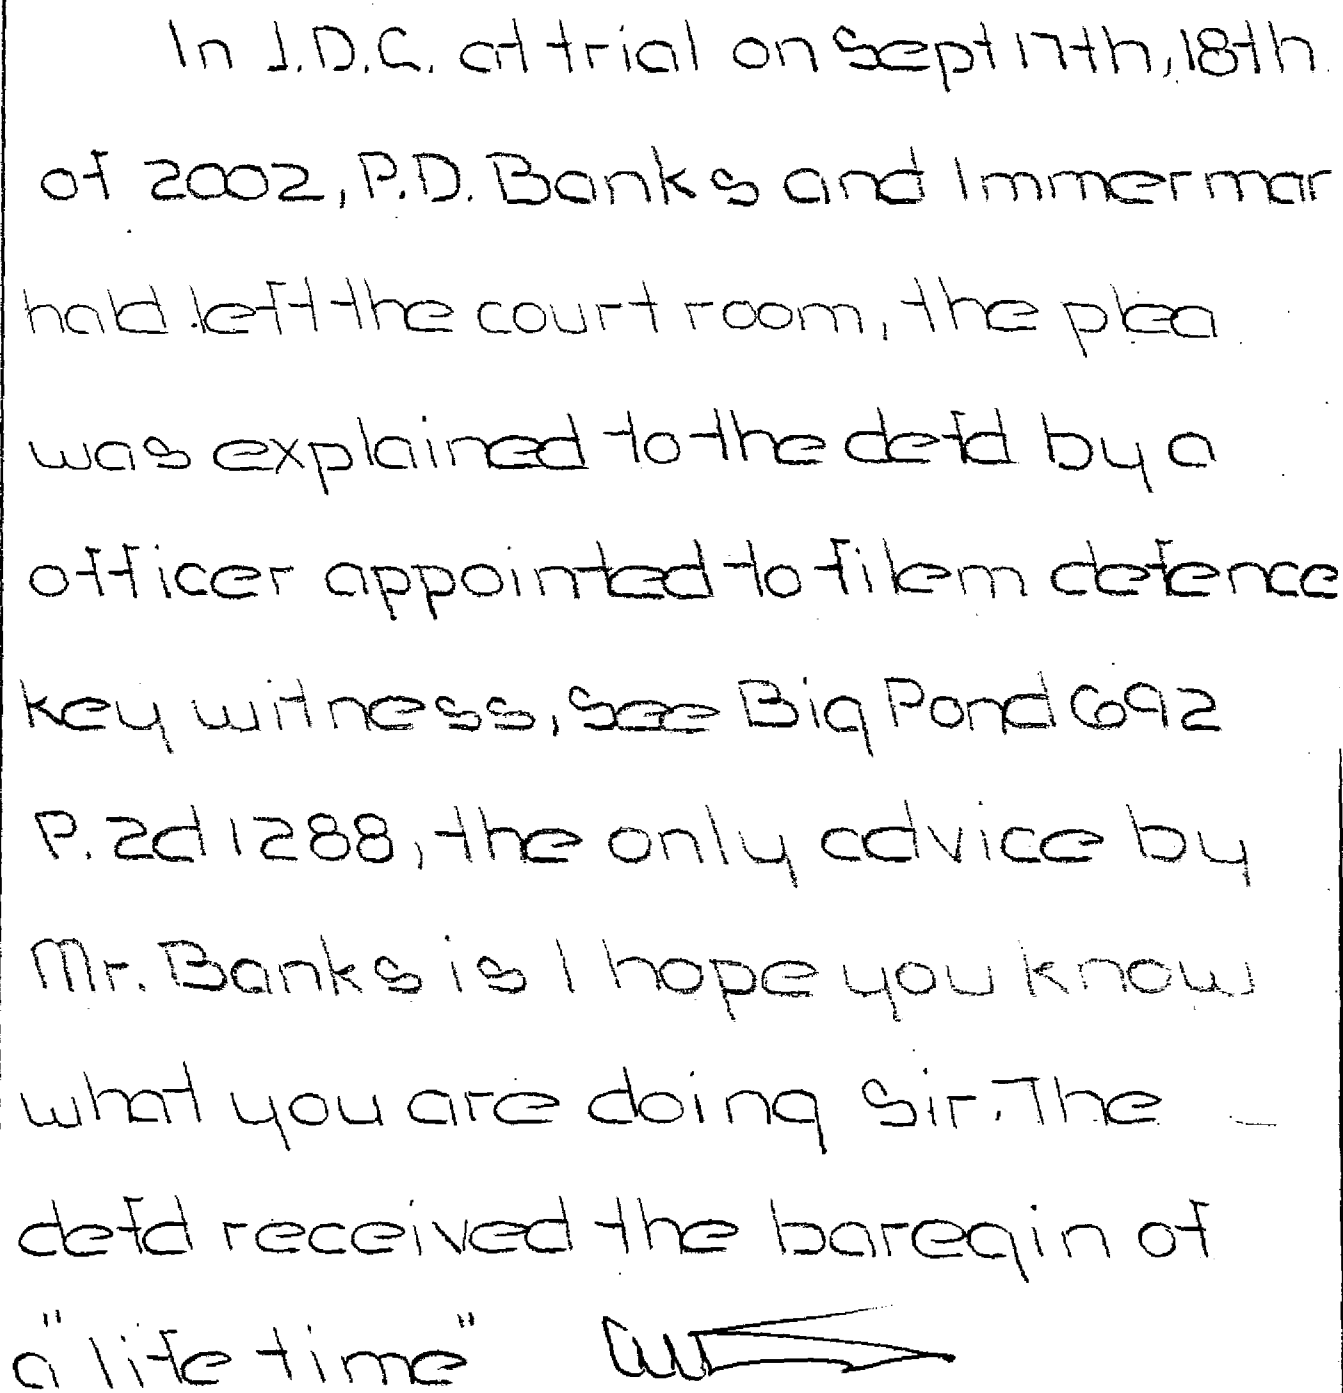 In J.D.C. at trial on Sept 17th, 18th
of 2002, P.D. Banks and Immerman
had left the court room, the plea
was explained to the defd by a
officer appointed to filem defence
key witness, see Big Pond 692
P. 2d 1288, the only advice by
Mr. Banks is I hope you know
what you are doing Sir. The
defd received the baregin of
a "life time"